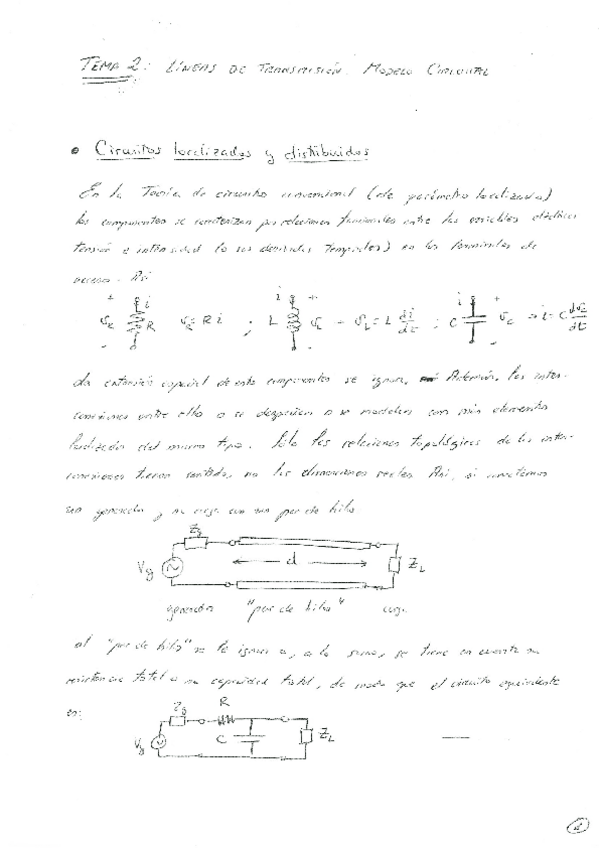 TEMA 2: LÍNEAS DE TRANSMISIÓN. MODELO CIRCUITAL
• Circuitos localizados y distribuidos
En la Teoría de circuitos convencional (de parámetro localizado)
los componentes se caracterizan por relaciones funcionales entre las variables eléctricas
tensión e intensidad (o sus derivadas temporales) en los terminales de
acceso. Así
+ i R - v = R i ; L + v - v = L di/dt ; i C + - ⇒ i = C dv/dt
La extensión espacial de estos componentes se ignora. Además, las inter-
conexiones entre ellos o se desprecian o se modelan con más elementos
localizados del mismo tipo. Sólo las relaciones topológicas de las inter-
conexiones tienen sentido, no las dimensiones reales. Así, si conectamos
un generador y su carga con un par de hilos
Zg
Vg d ZL
generador "par de hilos" carga
al "par de hilos" se le ignora o, a lo sumo, se tiene en cuenta su
resistencia total o su capacidad total, de modo que el circuito equivalente
es:
Zg R
Vg C ZL